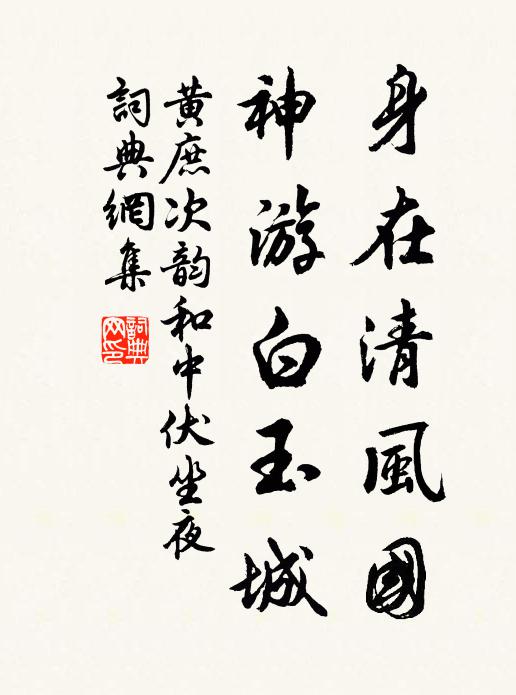 身在清風國
神游白玉城
黃庶次韵和中伏坐夜
詞典網集
詞典
网印